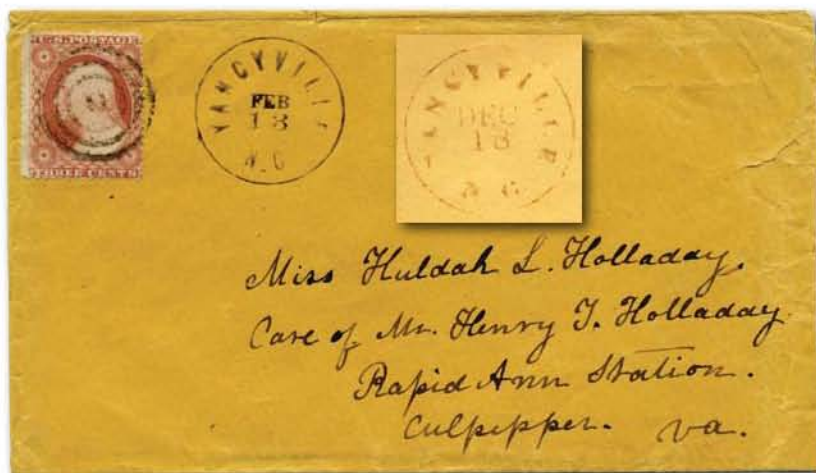 U.S. POSTAGE
THREE CENTS
YANCYVILLE
FEB
13
N.C
YANCYVILLE
DEC
13
N C
Miss Huldah L. Holladay.
Care of Mr. Henry T. Holladay
Rapid Ann Station.
Culpepper. Va.